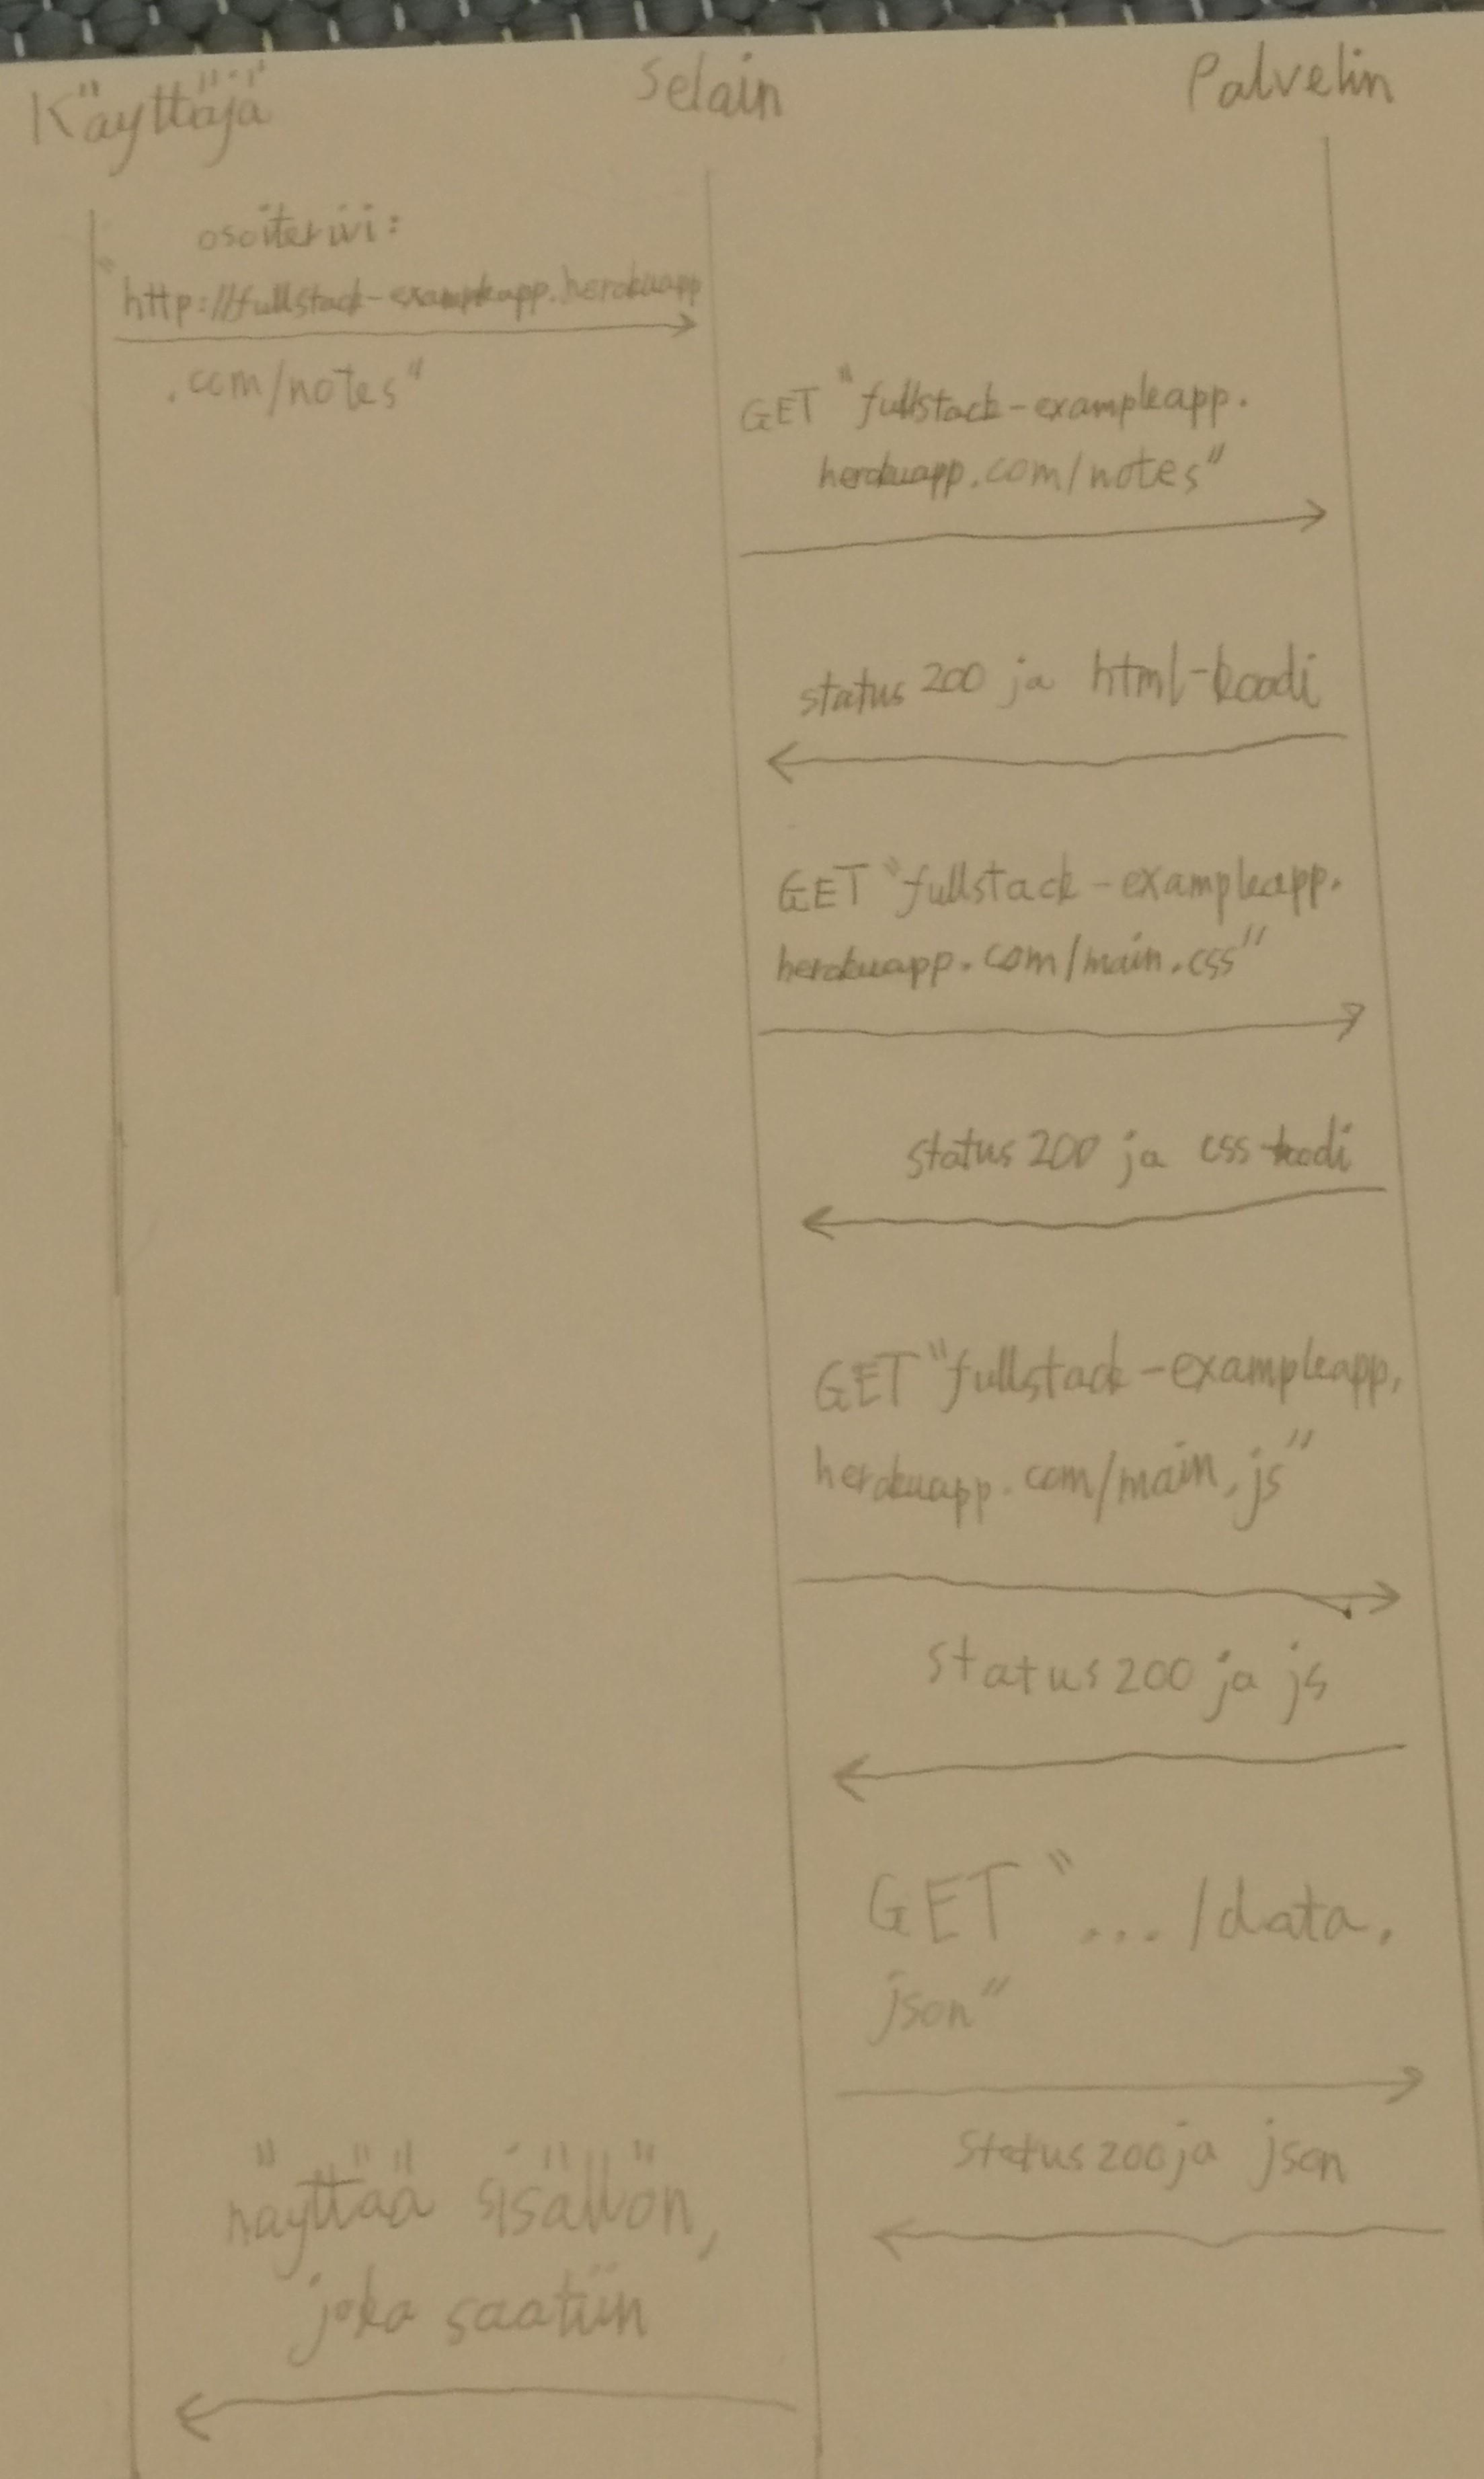 Käyttäjä
Selain
Palvelin
osoiterivi:
"http://fullstack-exampleapp.herokuapp
.com/notes"
GET "fullstack-exampleapp.
herokuapp.com/notes"
status 200 ja html-koodi
GET "fullstack-exampleapp.
herokuapp.com/main.css"
status 200 ja css-koodi
GET "fullstack-exampleapp.
herokuapp.com/main.js"
status 200 ja js
GET ".../data.
json"
status 200 ja json
näyttää sisällön,
joka saatiin